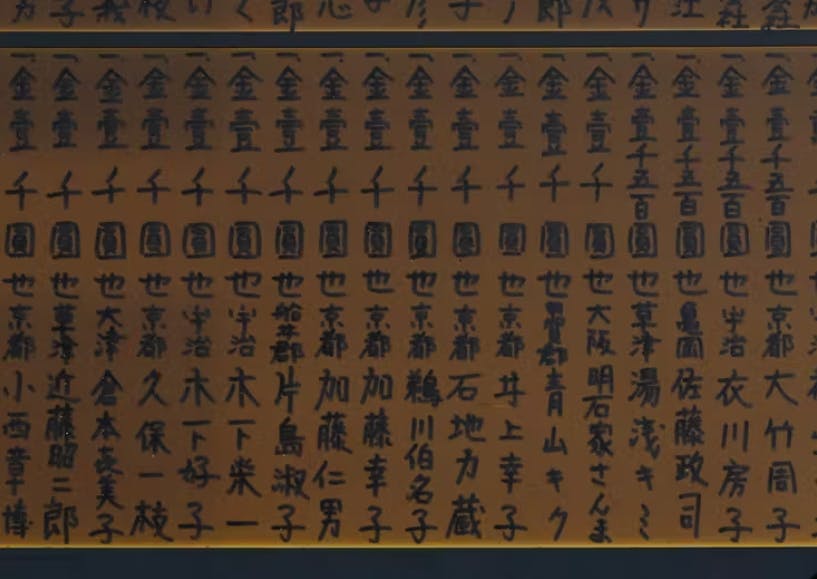 一金壹千五百圓也京都大竹周子
一金壹千五百圓也宇治衣川房子
一金壹千五百圓也亀岡佐藤政司
一金壹千五百圓也草津湯浅キミ
一金壹千圓也大阪明石家さんま
一金壹千圓也愛智郡青山キク
一金壹千圓也京都井上幸子
一金壹千圓也京都石地力蔵
一金壹千圓也京都鵜川伯名子
一金壹千圓也京都加藤幸子
一金壹千圓也京都加藤仁男
一金壹千圓也船井郡片島淑子
一金壹千圓也宇治木下柴一
一金壹千圓也宇治木下好子
一金壹千圓也京都久保一枝
一金壹千圓也大津倉本喜美子
一金壹千圓也草津近藤昭二郎
一金壹千圓也京都小西章博